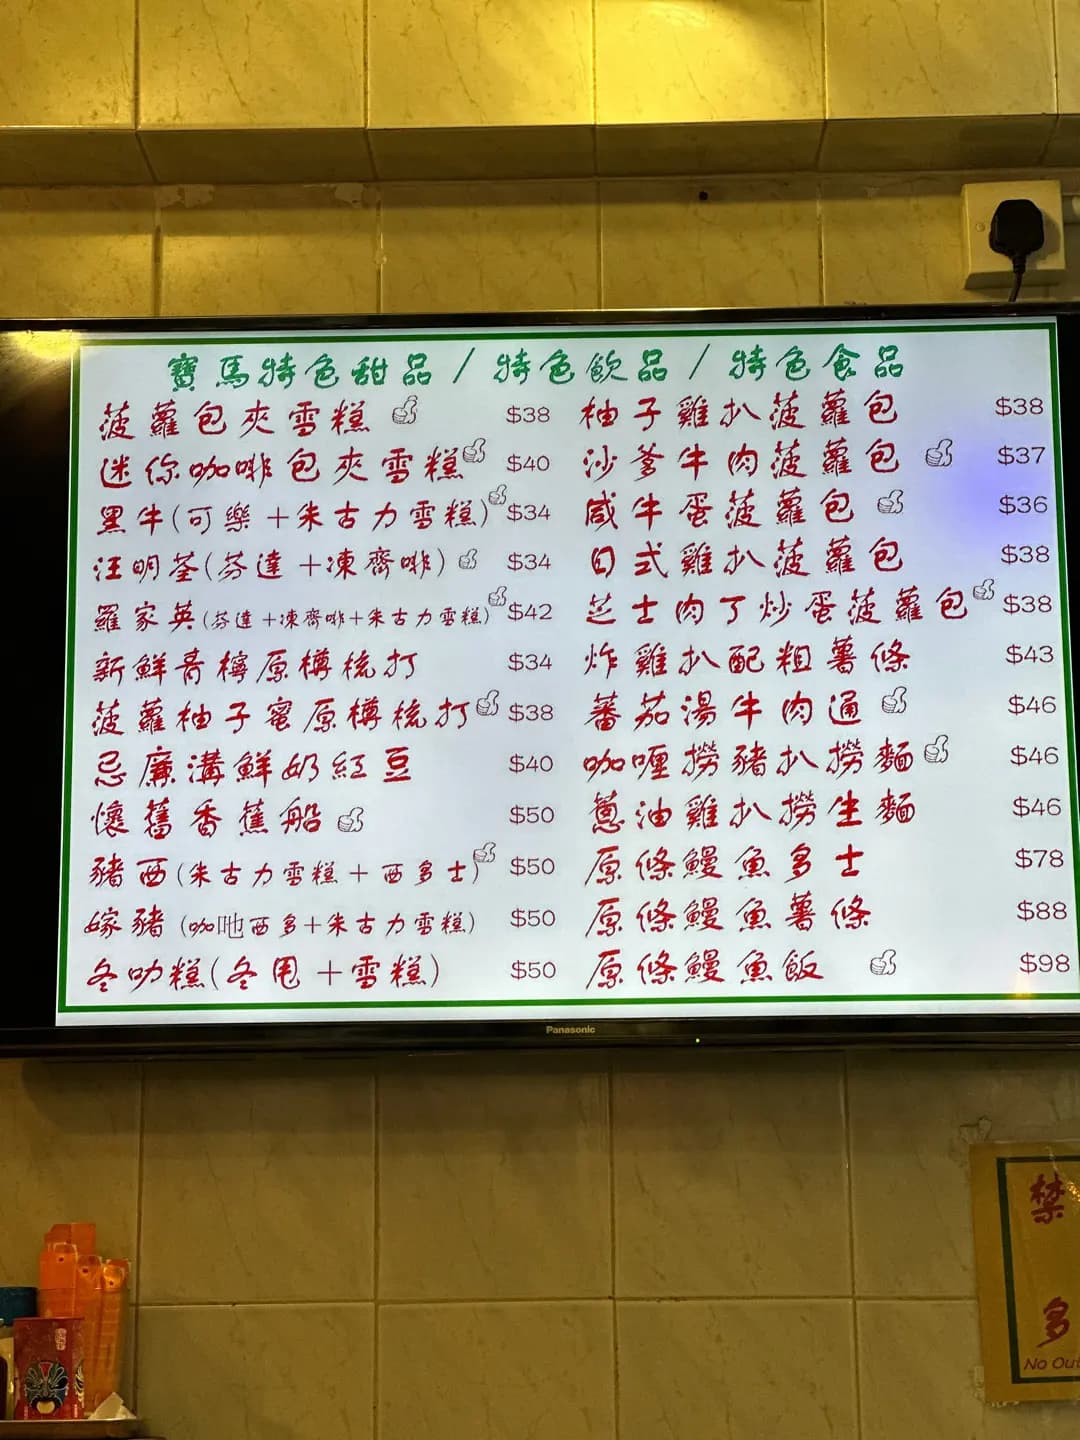 寶馬特色甜品 / 特色飲品 / 特色食品
菠蘿包夾雪糕 $38
迷你咖啡包夾雪糕 $40
黑牛(可樂+朱古力雪糕) $34
汪明荃(芬達+凍齋啡) $34
羅家英(芬達+凍齋啡+朱古力雪糕) $42
新鮮青檸原樽梳打 $34
菠蘿柚子蜜原樽梳打 $38
忌廉溝鮮奶紅豆 $40
懷舊香蕉船 $50
豬西(朱古力雪糕+西多士) $50
嫁豬(咖吔西多+朱古力雪糕) $50
冬叻糕(冬甩+雪糕) $50
柚子雞扒菠蘿包 $38
沙爹牛肉菠蘿包 $37
咸牛蛋菠蘿包 $36
日式雞扒菠蘿包 $38
芝士肉丁炒蛋菠蘿包 $38
炸雞扒配粗薯條 $43
蕃茄湯牛肉通 $46
咖喱撈豬扒撈麵 $46
蔥油雞扒撈生麵 $46
原條鰻魚多士 $78
原條鰻魚薯條 $88
原條鰻魚飯 $98
Panasonic
禁
多
No Out